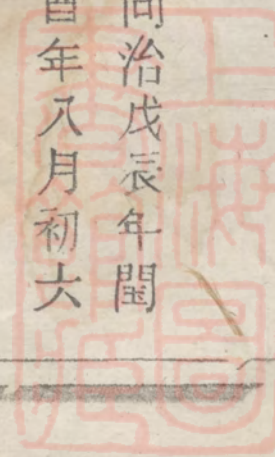 同治戊辰年閏
酉年八月初六
上海圖